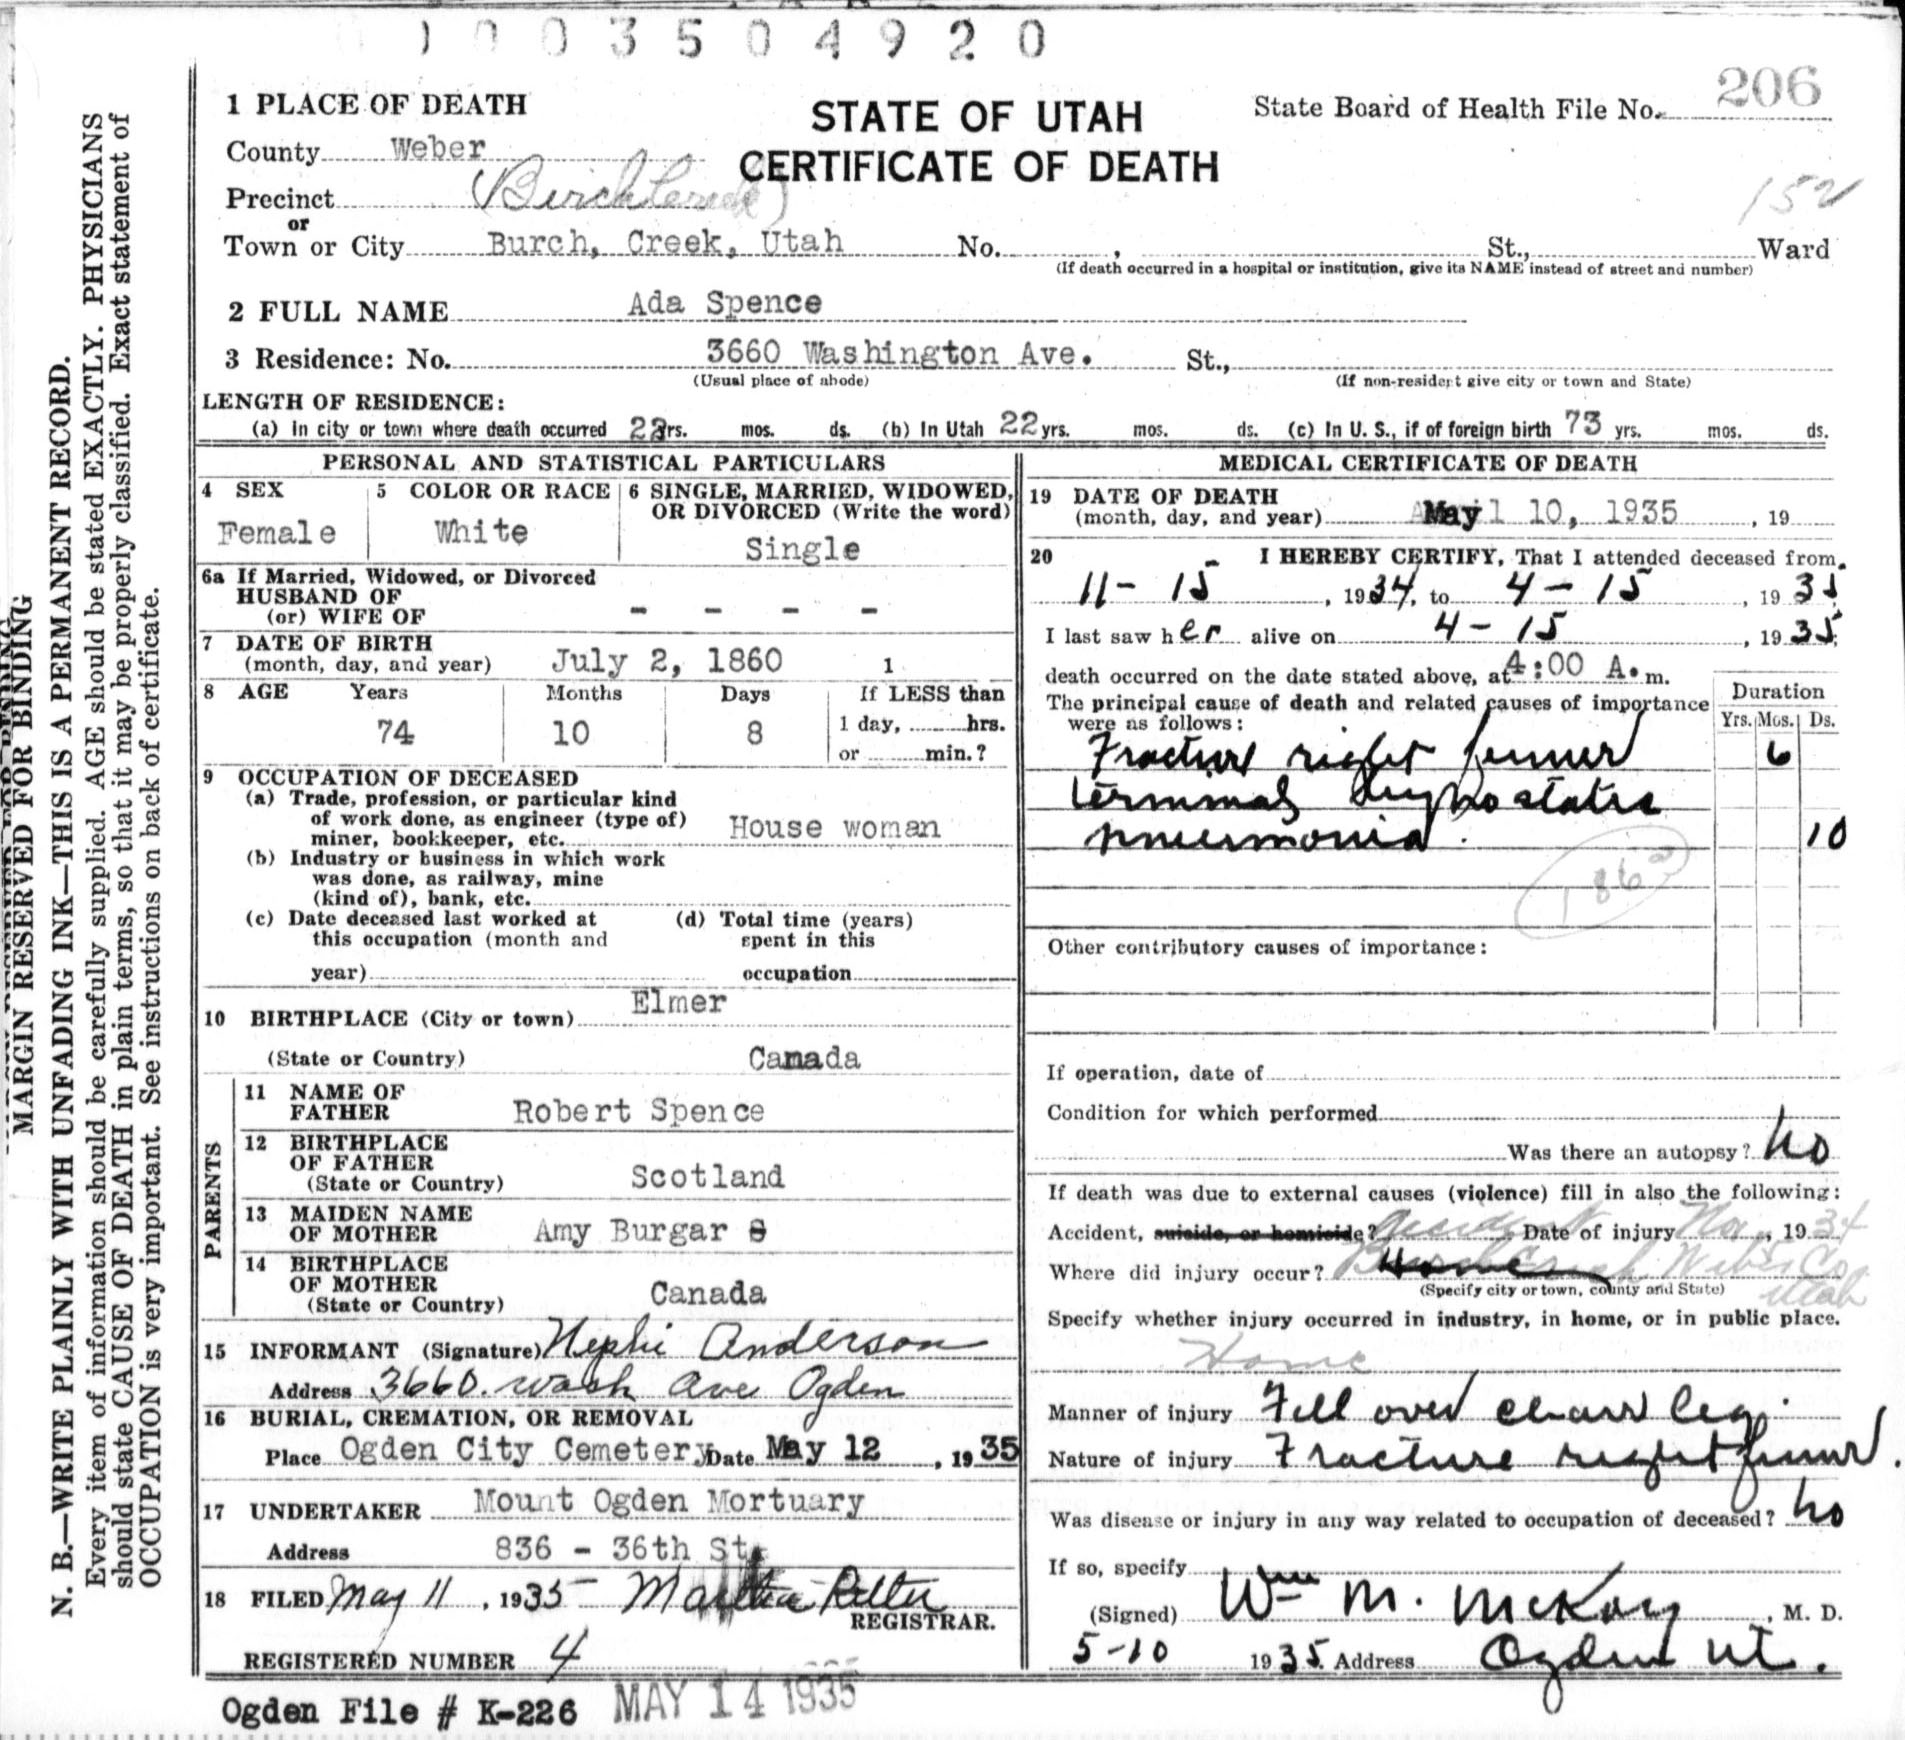 1003504920
206
1 PLACE OF DEATH
STATE OF UTAH
CERTIFICATE OF DEATH
State Board of Health File No.
County Weber
Precinct (Birch Creek)
152
or
Town or City Burch, Creek, Utah No. , St., Ward
(If death occurred in a hospital or institution, give its NAME instead of street and number)
2 FULL NAME Ada Spence
3 Residence: No. 3660 Washington Ave. St.,
(Usual place of abode) (If non-resident give city or town and State)
LENGTH OF RESIDENCE:
(a) In city or town where death occurred 22 yrs. mos. ds. (b) In Utah 22 yrs. mos. ds. (c) In U. S., if of foreign birth 73 yrs. mos. ds.
PERSONAL AND STATISTICAL PARTICULARS
4 SEX Female
5 COLOR OR RACE White
6 SINGLE, MARRIED, WIDOWED,
OR DIVORCED (Write the word)
Single
6a If Married, Widowed, or Divorced
HUSBAND OF
(or) WIFE OF - - - -
7 DATE OF BIRTH
(month, day, and year) July 2, 1860 1
8 AGE Years Months Days If LESS than
74 10 8 1 day, hrs.
or min.?
9 OCCUPATION OF DECEASED
(a) Trade, profession, or particular kind
of work done, as engineer (type of)
miner, bookkeeper, etc. House woman
(b) Industry or business in which work
was done, as railway, mine
(kind of), bank, etc.
(c) Date deceased last worked at
this occupation (month and
year)
(d) Total time (years)
spent in this
occupation
10 BIRTHPLACE (City or town) Elmer
(State or Country) Canada
PARENTS
11 NAME OF
FATHER Robert Spence
12 BIRTHPLACE
OF FATHER
(State or Country) Scotland
13 MAIDEN NAME
OF MOTHER Amy Burgar S
14 BIRTHPLACE
OF MOTHER
(State or Country) Canada
15 INFORMANT (Signature) Nephi Anderson
Address 3660. Wash Ave Ogden
16 BURIAL, CREMATION, OR REMOVAL
Place Ogden City Cemetery Date May 12, 1935
17 UNDERTAKER Mount Ogden Mortuary
Address 836 - 36th St.
18 FILED May 11, 1935 Martha
REGISTRAR.
REGISTERED NUMBER 4
Ogden File # K-226 MAY 14 1935
MEDICAL CERTIFICATE OF DEATH
19 DATE OF DEATH
(month, day, and year) May 10, 1935, 19
20 I HEREBY CERTIFY, That I attended deceased from
11-15, 1934, to 4-15, 1935
I last saw her alive on 4-15, 1935,
death occurred on the date stated above, at 4:00 A.m.
The principal cause of death and related causes of importance
were as follows:
Duration
Yrs. Mos. Ds.
Fracture right femur 6
terminal hypostatic
pneumonia. 10
186a
Other contributory causes of importance:
If operation, date of
Condition for which performed
Was there an autopsy? no
If death was due to external causes (violence) fill in also the following:
Accident, suicide, or homicide? accident Date of injury Nov, 1934
Where did injury occur? Home Burch Creek Weber Co
(Specify city or town, county and State) Utah
Specify whether injury occurred in industry, in home, or in public place.
Home
Manner of injury Fell over chair leg.
Nature of injury Fracture right femur.
Was disease or injury in any way related to occupation of deceased? no
If so, specify
(Signed) Wm M. McKay, M. D.
5-10 1935. Address Ogden Ut.
MARGIN RESERVED FOR BINDING
N. B.—WRITE PLAINLY WITH UNFADING INK—THIS IS A PERMANENT RECORD.
Every item of information should be carefully supplied. AGE should be stated EXACTLY. PHYSICIANS
should state CAUSE OF DEATH in plain terms, so that it may be properly classified. Exact statement of
OCCUPATION is very important. See instructions on back of certificate.